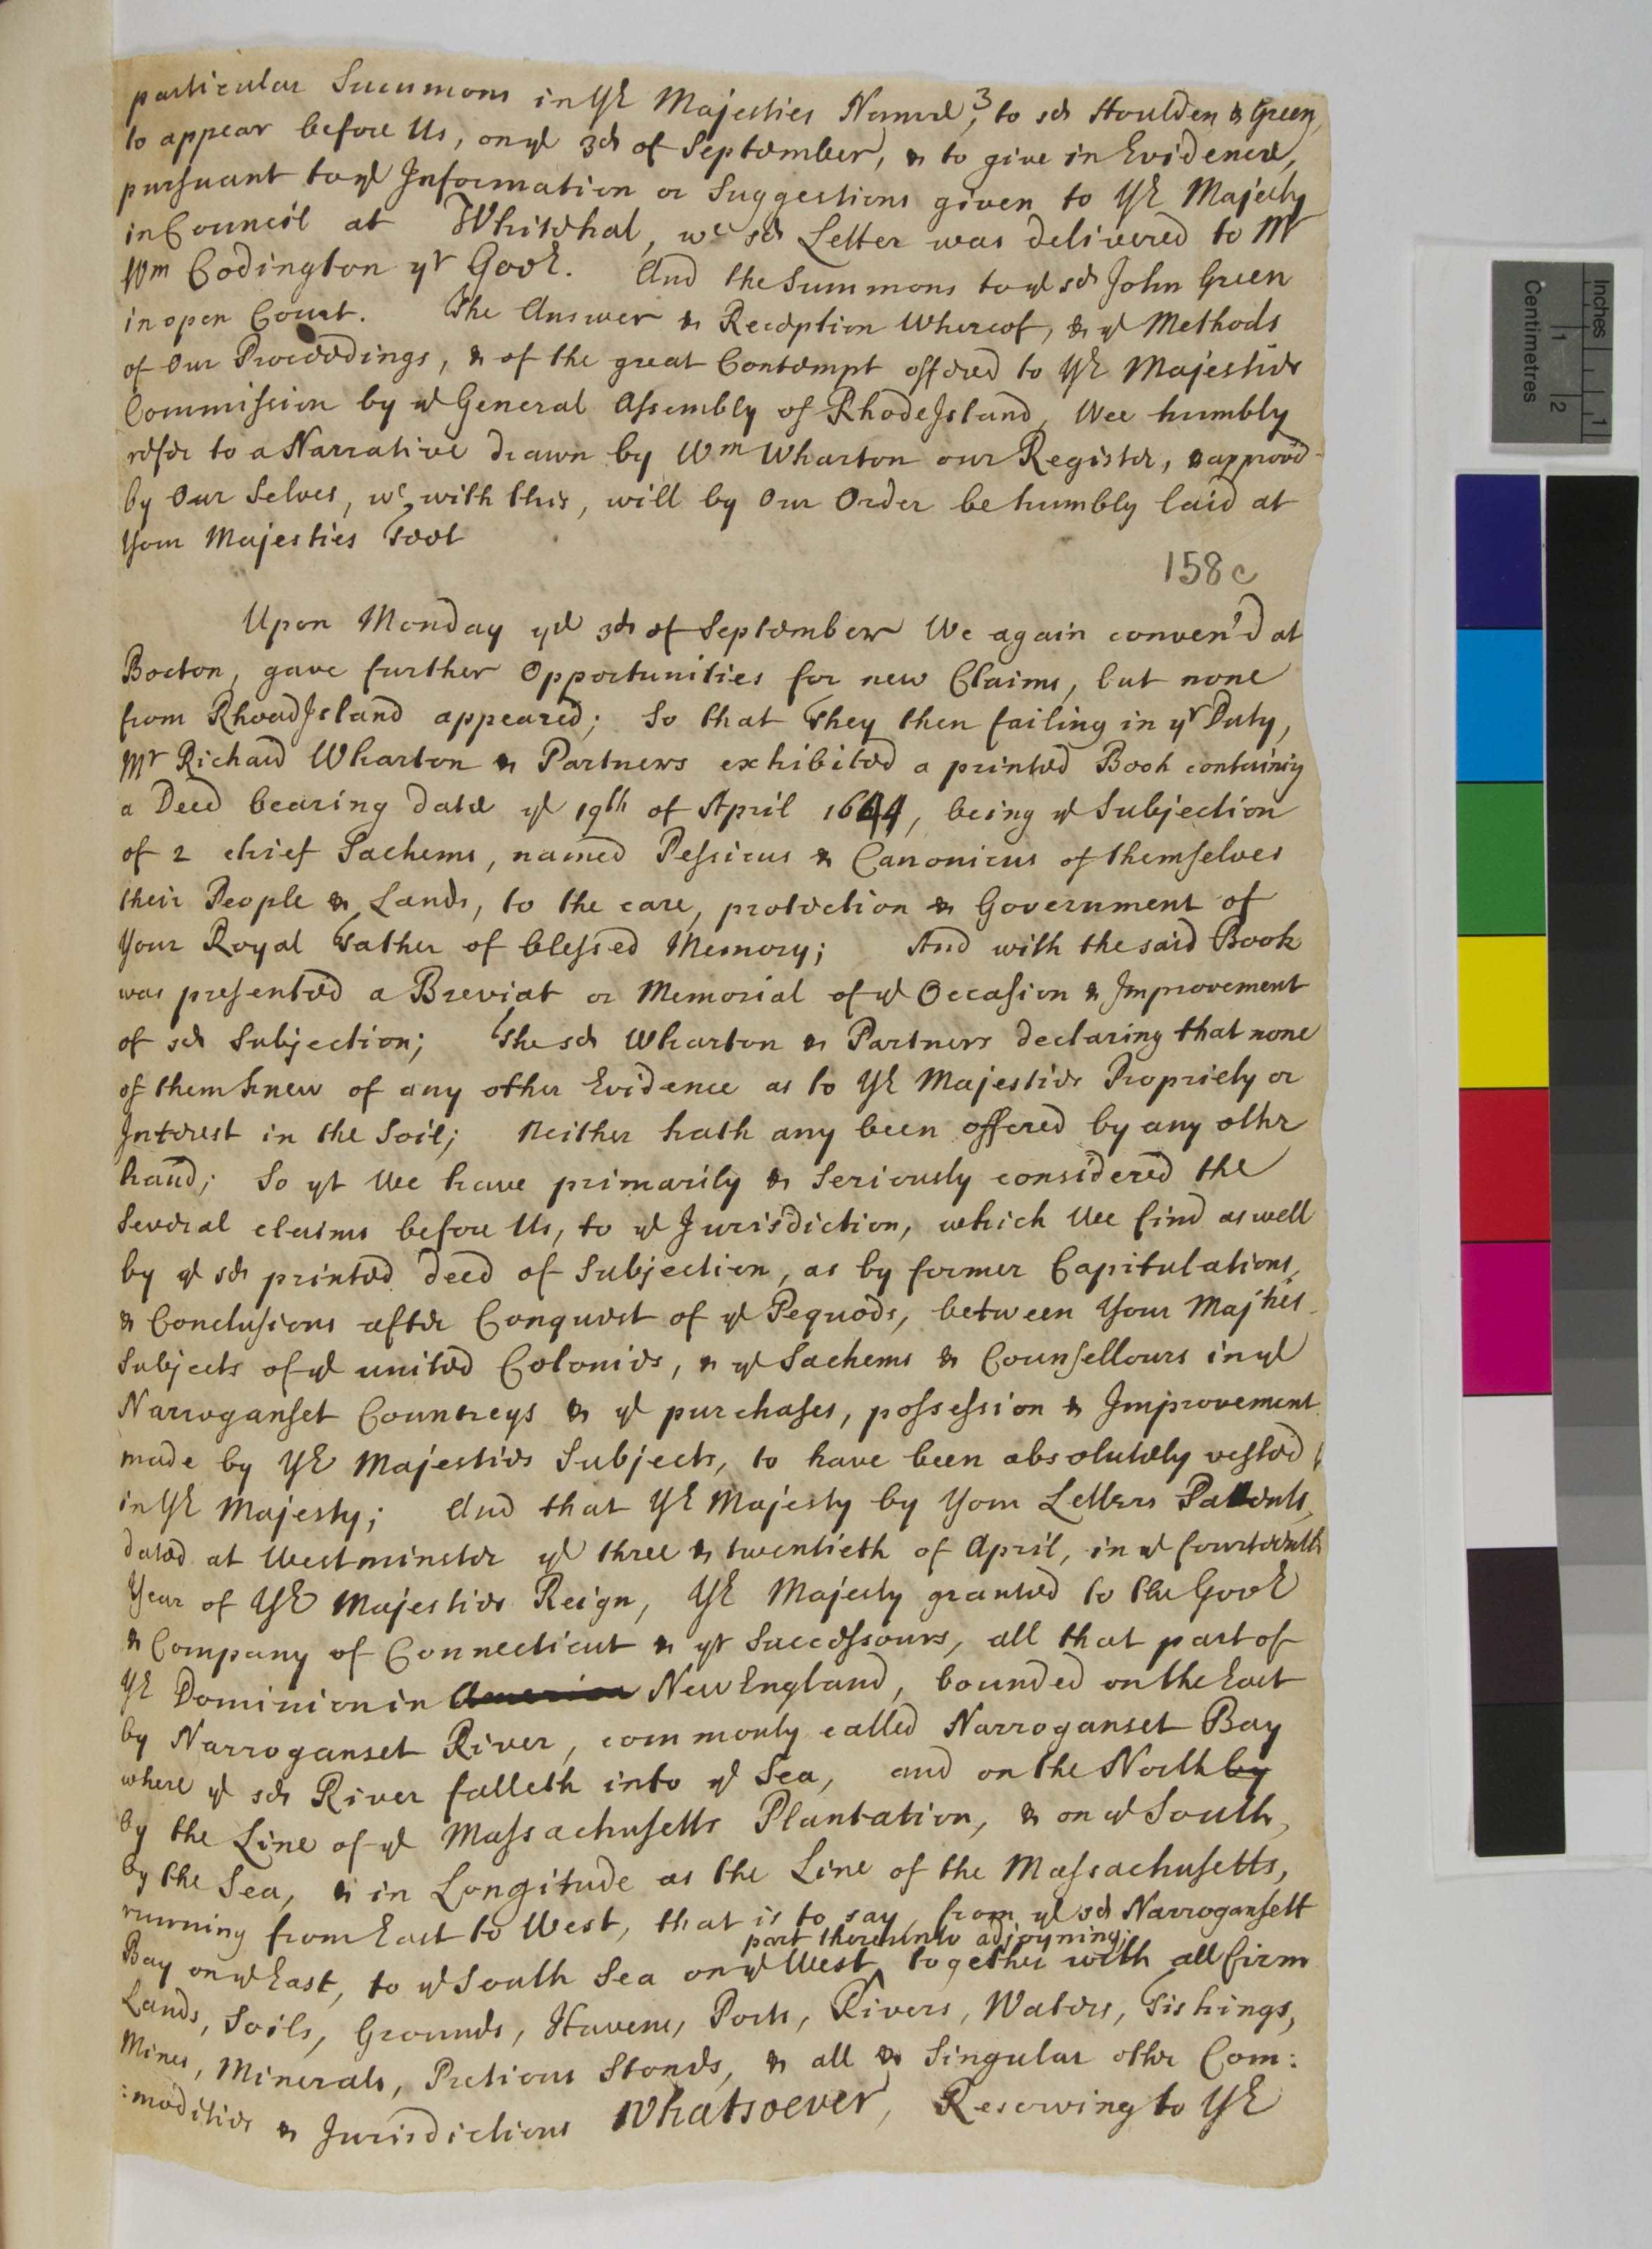 particular Summons in Yr Majesties Name, to sd Houlden & Green,
to appear before Us, on ye 3d of September, & to give in Evidence,
pursuant to ye Information or Suggestions given to Yr Majesty
in Council at Whitehal, wc sd Letter was delivered to Mr
Wm Codington yr Govr. And the Summons to ye sd John Green
in open Court. The Answer & Reception Whereof, & ye Methods
of Our Proceedings, & of the great Contempt offered to Yr Majesties
Commission by ye General Assembly of Rhode Island, Wee humbly
refer to a Narrative drawn by Wm Wharton our Register, & approv'd
by Our Selves, wc with this, will by Our Order be humbly laid at
Your Majesties Feet
158c
Upon Monday ye 3d of September We again conven'd at
Boston, gave further Opportunities for new Claims, but none
from Rhoad Island appeared; So that They then failing in yr Duty,
Mr Richard Wharton & Partners exhibited a printed Book containing
a Deed bearing date ye 19th of April 1644, being ye Subjection
of 2 chief Sachems, named Pessicus & Canonicus of themselves
their People & Lands, to the care, protection & Government of
Your Royal Father of blessed Memory; And with the said Book
was presented a Breviat or Memorial of ye Occasion & Improvement
of sd Subjection; The sd Wharton & Partners declaring that none
of them knew of any other Evidence as to Yr Majesties Propriety or
Interest in the Soil; Neither hath any been offered by any other
hand; So yt We have primarily & Seriously considered the
Several claims before Us, to ye Jurisdiction, which We find as well
by ye sd printed deed of Subjection, as by former Capitulations,
& Conclusions after Conquest of ye Pequods, between Your Majties
Subjects of ye united Colonies, & ye Sachems & Counsellours in ye
Narroganset Countreys & ye purchases, possession & Improvement
made by Yr Majesties Subjects, to have been absolutely vested
in Yr Majesty; And that Yr Majesty by Your Letters Pattents,
dated at Westminster ye three & twentieth of April, in ye fourteenth
Year of Yr Majesties Reign, Yr Majesty granted to the Govr
& Company of Connecticut & yr Successours, all that part of
Yr Dominion in America New England, bounded on the East
by Narroganset River, commonly called Narroganset Bay
where ye sd River falleth into ye Sea, and on the North by
by the Line of ye Massachusetts Plantation, & on ye South,
by the Sea, & in Longitude as the Line of the Massachusetts,
running from East to West, that is to say, from ye sd Narrogansett
part thereunto adjoyning;
Bay on ye East, to ye South Sea on ye West together with all firm
Lands, Soils, Grounds, Havens, Ports, Rivers, Waters, Fishings,
Mines, Minerals, Pretious Stones, & all & Singular other Com:
:modities & Jurisdictions Whatsoever, Reserving to Yr
Inches
1
Centimetres
1
2